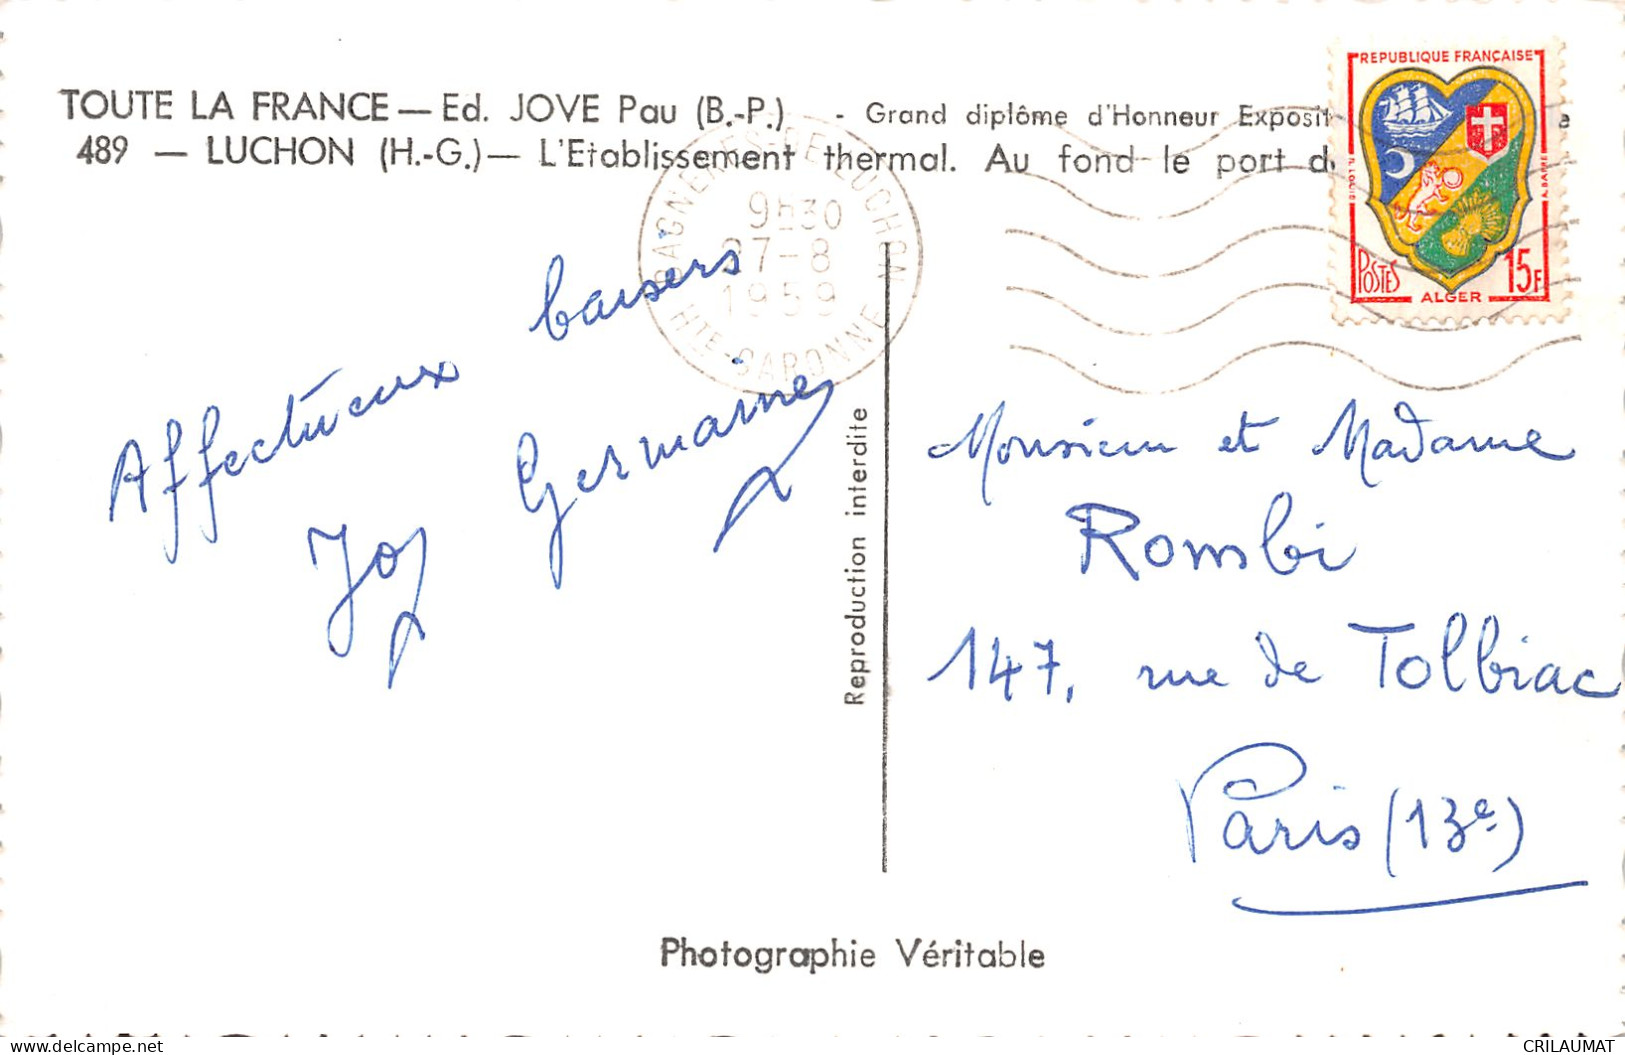 TOUTE LA FRANCE — Ed. JOVE Pau (B.-P.) - Grand diplôme d'Honneur
489 — LUCHON (H.-G.) — L'Etablissement thermal. Au fond le port
REPUBLIQUE FRANÇAISE
POSTES
ALGER
15F
BAGNERES-DE-LUCHON
9h30
27-8
1959
HTE-GARONNE
Affectueux baisers
Germaine
Reproduction interdite
Monsieur et Madame
Rombi
147, rue de Tolbiac
Paris (13e)
Photographie Véritable
delcampe.net
CRILAUMAT